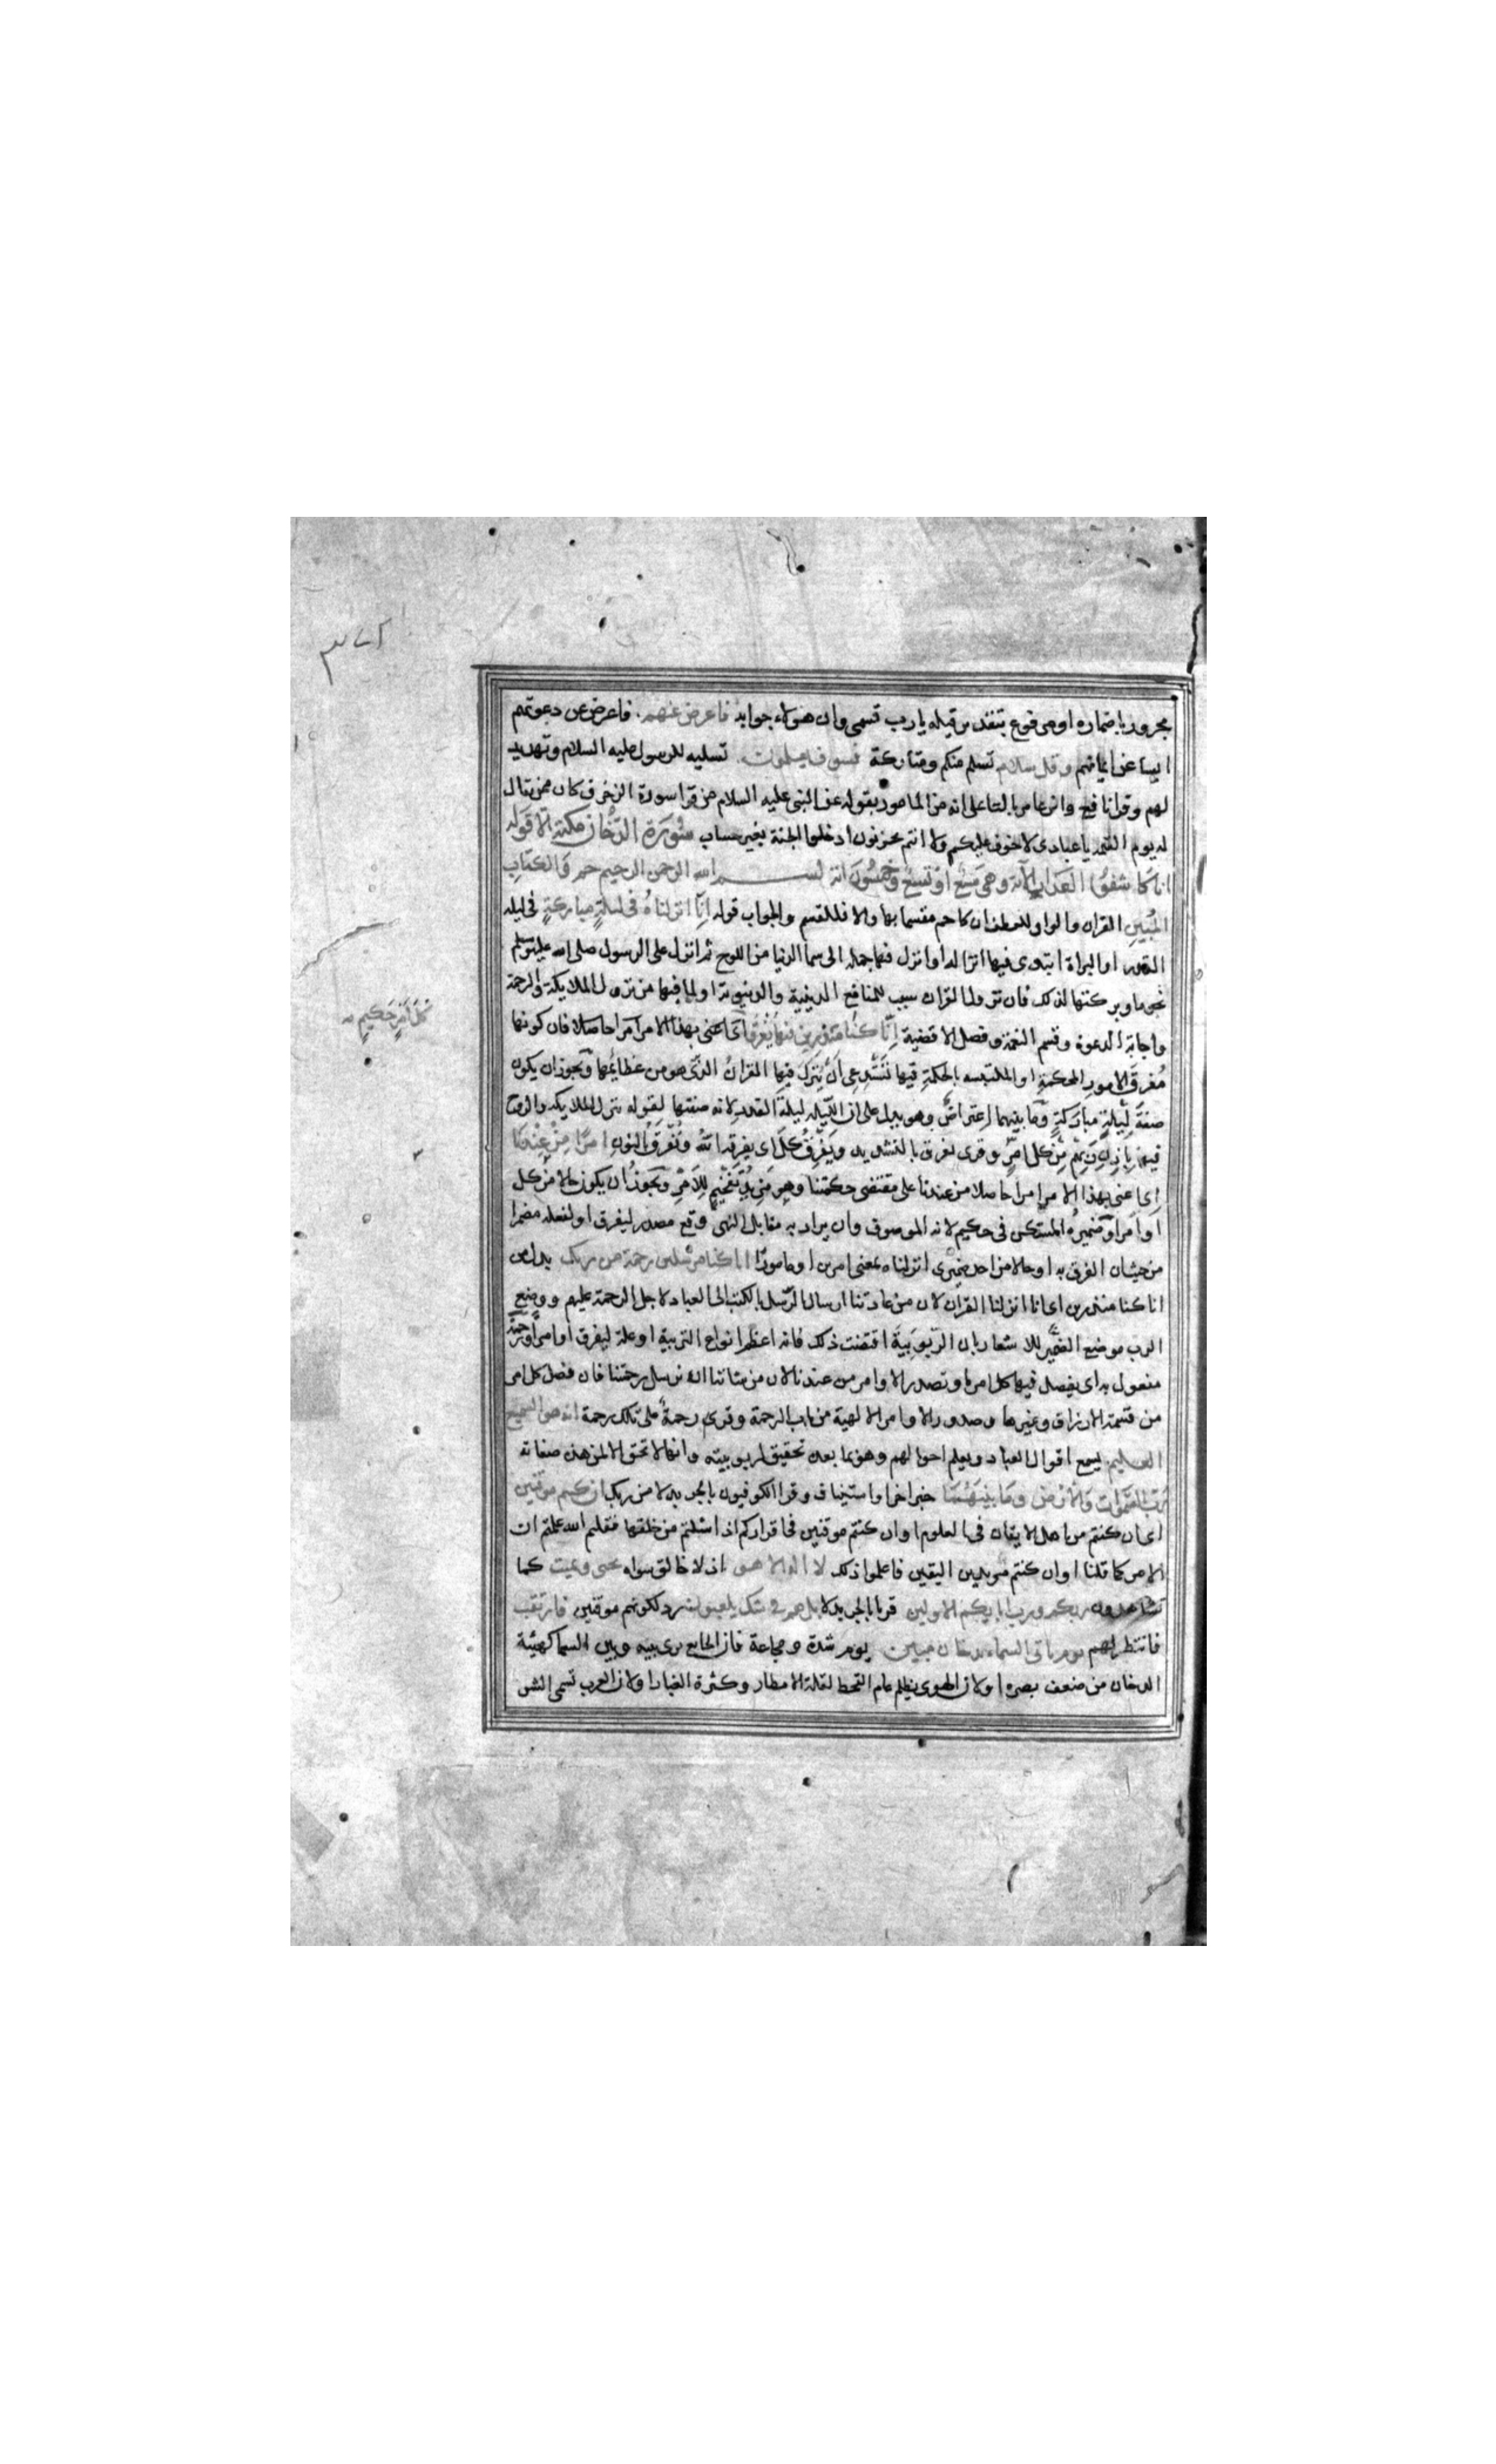 مجرور باضماره او مرفوع بتقدير وقيله يا رب قسمى وان هولاء جوابه فاعرض عنهم فاعرض عن دعوتهم
ايسا عن ايمانهم وقل سلام تسلم منكم ومتاركة فسوف يعلمون تسليه للرسول عليه السلام وتهديد
لهم وقرا نافع وابن عامر بالتا على انه من المامور بقوله عن النبى عليه السلام من قرا سورة الزخرف كان ممن يقال
له يوم القيمه يا عبادى لا خوف عليكم ولا انتم تحزنون ادخلوا الجنة بغير حساب سُورَة الدّخان مكية الا قوله
انا كاشفوا العذاب الآية وهى سَبْع أو تسع وخمسُون اية بسم الله الرحمن الرحيم حم وَالكتابِ
المُبينِ القران والواو للعطف ان كان حم مقسما بها والا فللقسم والجواب قوله إنّا انزلناهُ فى ليلةٍ مباركةٍ فى ليله
القدر او البراة ابتدى فيها انزاله او انزل فيها جمله الى سما الدنيا من اللوح ثم انزل على الرسول صلى الله عليه وسلم
نجوما وبركتها لذلك فان نزول القران سبب للمنافع الدينية والدنيوية او لما فيها من نزول الملايكة والرحمة
واجابة الدعوة وقسم النعمة وفصل الاقضية إِنَّا كنُا منذرين فيهَا يُفْرَقُ اى اعنى بهذا الامر امرا حاصلا فان كونها
كلّ أمْرٍ حَكيمٍ صح
مُفرقَ الامورِ المحكمةِ او الملتبسه بالحكمةِ فيها تَسْتَدِعى أَنْ يُنزلَ فيها القرانُ الذّى هو من عظائمها وَيجوز ان يكون
صفةَ لَيلةٍ مباركةٍ وَما بينهما اعِتراضٌ وهو يدل على ان الليله ليلةَ القدر لانه صفتها لقوله تنزل الملايكه والروح
فيها بإذنِ رَبّهم مِّن كلّ امرٍ وقرى يفرق بالتشديد ويَفْرِقُ كلَّ اى يفرقه اللهُ ونُفْرِقُ بالنون امرًا مِنْ عِنْدنا
اى اعنى بهذا الامر امرا حاصلا من عندنا على مقتضى حكمتنا وهو مَزيدُ تفخيمٍ للاَمْرِ وَيجوزُ ان يكون حالا من كل
أو أمر او ضميرهُ المستكن فى حكيم لانه الموصوف وان يراد به مقابل النهى وقع مصدر ليفرق او لفعله مضمرا
من حيث ان الفرق به او حالا من احد ضميرى انزلناه بمعنى امرين او مامورًا انا كنا مرسلين رحمة من ربك بدل من
انا كنا منذرين اى انا انزلنا القران لان من عادتنا ارسال الرّسل بالكتب الى العباد لاجل الرحمة عليهم ووضع
الرب موضع الضّمير للاشعار بان الرّبوبيةَ اقتضت ذلك فانه اعظم انواع التربية او علة ليفرق او امرا ورحمةً
مفعول به اى يفصل فيها كل امر او تصدر الاوامر من عندنا لان من شاننا ان نرسل رحمتنا فان فصل كل امر
من قسمة الارزاق وغيرها وصدور الاوامر الالهية من باب الرحمة وقرى رحمةٌ على تلك رحمة انه هو السميع
العليم يسمع اقوال العباد ويعلم احوالهم وهو بما بعده تحقيق لربوبيته وانها لا تحق الا لمن هذه صفاته
رَبّ السّموات وَالأرض وَمَا بينَهُمَا خبر اخر او استيناف وقرا الكوفيون بالجر بدلا من ربك ان كنتم موقنين
اى ان كنتم من اهل الايقان فى العلوم او ان كنتم موقنين فى اقراركم اذا سئلتم من خلقها فقلتم الله علمتم ان
الامر كما قلنا او ان كنتم مريدين اليقين فاعلموا ذلك لا اله الا هو اذ لا خالق سواه يحى ويميت كما
تشاهدون ربكم ورب ابايكم الاولين قريا بالجر بدلا بل هم فى شك يلعبون رد لكونهم موقنين فارتقب
فانتظر لهم يوم تاتى السماء بدخان مبين يوم شدة ومجاعة فان الجايع يرى بينه وبين السما كهيئة
الدخان من ضعف بصره او لان الهوى يظلم عام القحط لقلة الامطار وكثرة الغبار او لان العرب تسمى الشر